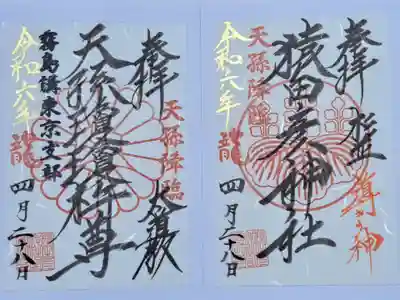 奉拝
天孫降臨
大麻頒
天孫瓊瓊杵尊
霧島講東京支部
令和六年
龍
四月二十八日
奉拝
導きの神
猿田彦神社
天孫降臨
令和六年
龍
四月二十八日